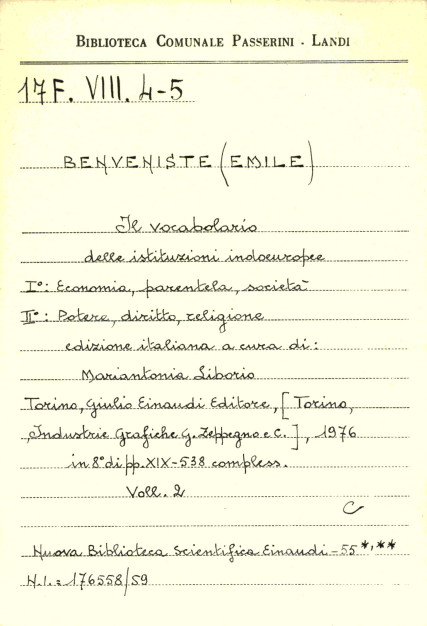 BIBLIOTECA COMUNALE PASSERINI - LANDI
17F. VIII. 4-5
BENVENISTE (EMILE)
Il vocabolario
delle istituzioni indoeuropee
I°: Economia, parentela, società
II°: Potere, diritto, religione
edizione italiana a cura di:
Mariantonia Liborio
Torino, Giulio Einaudi Editore, [Torino,
Industrie Grafiche G. Zeppegno e C.], 1976
in 8° di pp. XIX-538 compless.
Voll. 2
C
Nuova Biblioteca Scientifica Einaudi - 55*,**
N.I. = 176558/59